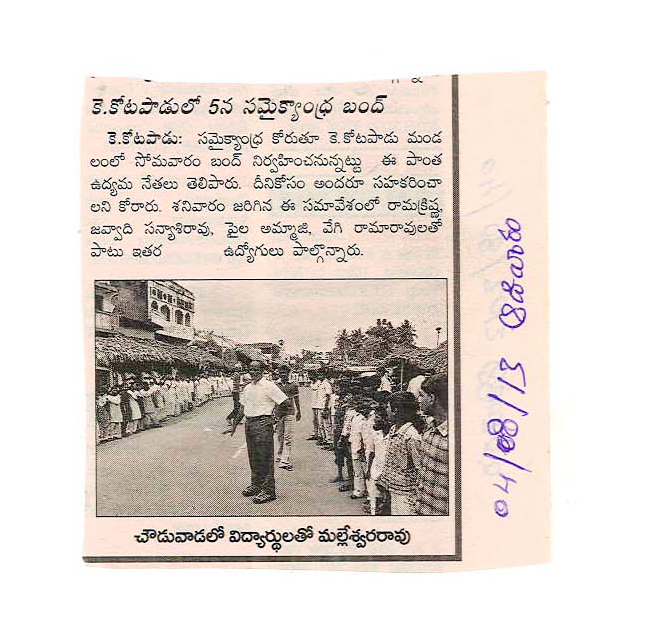 కె.కోటపాడులో 5న సమైక్యాంధ్ర బంద్
కె.కోటపాడు: సమైక్యాంధ్ర కోరుతూ కె.కోటపాడు మండ
లంలో సోమవారం బంద్ నిర్వహించనున్నట్టు ఈ పాంత
ఉద్యమ నేతలు తెలిపారు. దీనికోసం అందరూ సహకరించా
లని కోరారు. శనివారం జరిగిన ఈ సమావేశంలో రామక్రిష్ణ,
జవ్వాది సన్యాశిరావు, పైల అమ్మాజి, వేగి రామారావులతో
పాటు ఇతర ఉద్యోగులు పాల్గొన్నారు.
చౌడువాడలో విద్యార్థులతో మల్లేశ్వరరావు
04/08/13 ఆదివారం